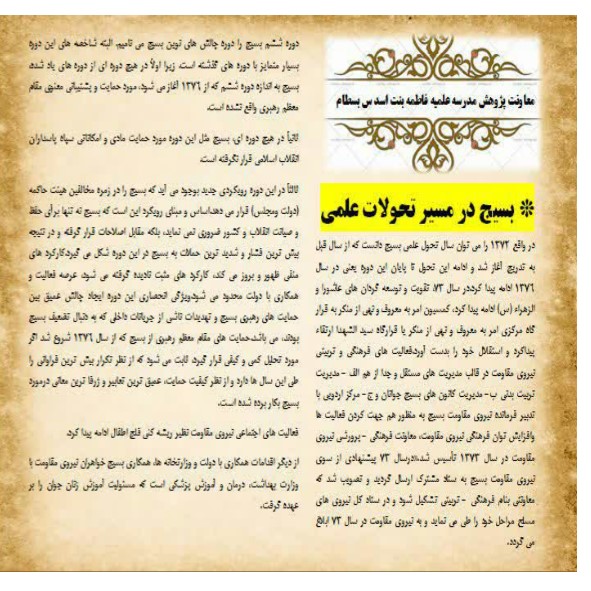 معاونت پژوهش مدرسه علمیه فاطمه بنت اسد س بسطام
❊ بسیج در مسیر تحولات علمی
در واقع ۱۳۷۲ را می توان سال تحول علمی بسیج دانست که از سال قبل
به تدریج آغاز شد و ادامه این تحول تا پایان این دوره یعنی در سال
۱۳۷۶ ادامه پیدا کرددر سال ۷۳، تقویت و توسعه گردان های عاشورا و
الزهراء (س) ادامه پیدا کرد، کمسیون امر به معروف و نهی از منکر به قرار
گاه مرکزی امر به معروف و نهی از منکر یا قرارگاه سید الشهدا ارتقاء
پیداکرد و استقلال خود را بدست آوردفعالیت های فرهنگی و تربیتی
نیروی مقاومت در قالب مدیریت های مستقل و جدا از هم الف - مدیریت
تربیت بدنی ب - مدیریت کانون های بسیج جوانان و ج - مرکز اردویی با
تدبیر فرمانده نیروی مقاومت بسیج به منظور هم جهت کردن فعالیت ها
وافزایش توان فرهنگی نیروی مقاومت، معاونت فرهنگی - پرورشی نیروی
مقاومت در سال ۱۳۷۳ تأسیس شد،،درسال ۷۳ پیشنهادی از سوی
نیروی مقاومت بسیج به ستاد مشترک ارسال گردید و تصویب شد که
معاونتی بنام فرهنگی - تربیتی تشکیل شود و در ستاد کل نیروی های
مسلح مراحل خود را طی می نماید و به نیروی مقاومت در سال ۷۳ ابلاغ
می گردد.
دوره ششم بسیج را دوره چالش های نوین بسیج می نامیم. البته شاخصه های این دوره
بسیار متمایز با دوره های گذشته است. زیرا اولاً در هیچ دوره ای از دوره های یاد شده،
بسیج به اندازه دوره ششم که از ۱۳۷۶ آغاز می شود، مورد حمایت و پشتیبانی معنوی مقام
معظم رهبری واقع نشده است.
ثانیاً در هیچ دوره ای، بسیج مثل این دوره مورد حمایت مادی و امکاناتی سپاه پاسداران
انقلاب اسلامی قرار نگرفته است.
ثالثاً در این دوره رویکردی جدید بوجود می آید که بسیج را در زمره مخالفین هیئت حاکمه
(دولت ومجلس) قرار می دهداساس و مبنای رویکرد این است که بسیج نه تنها برأی حفظ
و صیانت انقلاب و کشور ضروری نمی نماید، بلکه مقابل اصلاحات قرار گرفته و در نتیجه
بیش ترین فشار و شدید ترین حملات به بسیج در این دوره شکل می گیرد،کارکرد های
منفی ظهور و بروز می کند، کارکرد های مثبت نادیده گرفته می شود، عرصه فعالیت و
همکاری با دولت محدود می شود،ویژگی انحصاری این دوره ایجاد چالش عمیق بین
حمایت های رهبری بسیج و تهدیدات ناشی از جریانات داخلی که به دنبال تضعیف بسیج
بودند، می باشد،حمایت های مقام معظم رهبری از بسیج که از سال ۱۳۷۶ شروع شد اگر
مورد تحلیل کمی و کیفی قرار گیرد، ثابت می شود که از نظر تکرار بیش ترین فراوانی را
طی این سال ها دارد و از نظر کیفیت حمایت، عمیق ترین تعابیر و ژرفا ترین معانی درمورد
بسیج بکار برده شده است.
فعالیت های اجتماعی نیروی مقاومت نظیر ریشه کنی فلج اطفال ادامه پیدا کرد.
از دیگر اقدامات همکاری با دولت و وزارتخانه ها، همکاری بسیج خواهران نیروی مقاومت با
وزارت بهداشت، درمان و آموزش پزشکی است که مسئولیت آموزش زنان جوان را بر
عهده گرفت.